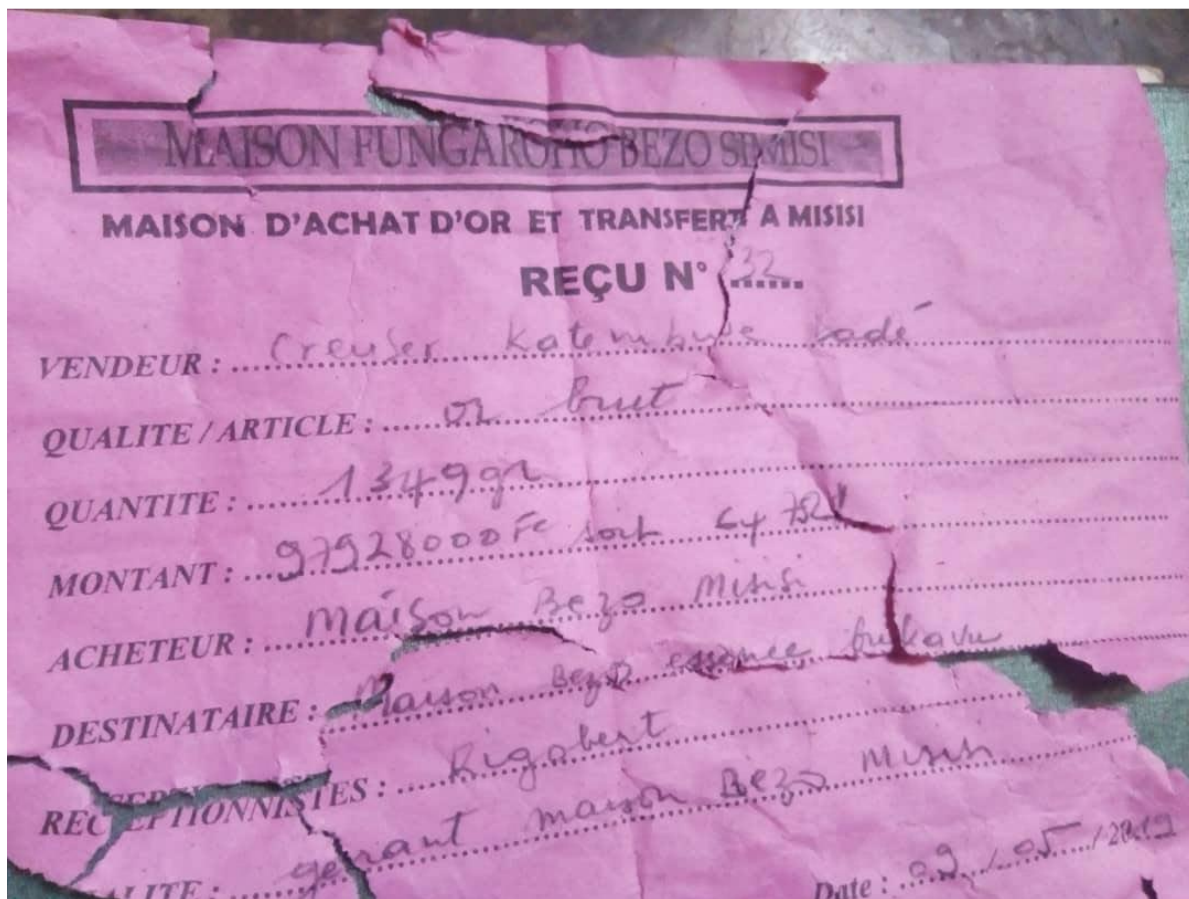 MAISON FUNGAROHO BEZO SIMISI
MAISON D'ACHAT D'OR ET TRANSFERT A MISISI
REÇU N° 32
VENDEUR : Creuser
QUALITE / ARTICLE : or brut
QUANTITE : 1349gr
MONTANT : 97928000 Fc soit
ACHETEUR : Maison Bezo Misisi
DESTINATAIRE : Maison Bezo essence bukavu
RECEPTIONNISTES : Rigobert
gerant maison Bezo Misisi
Date : 09 / 05 / 2019